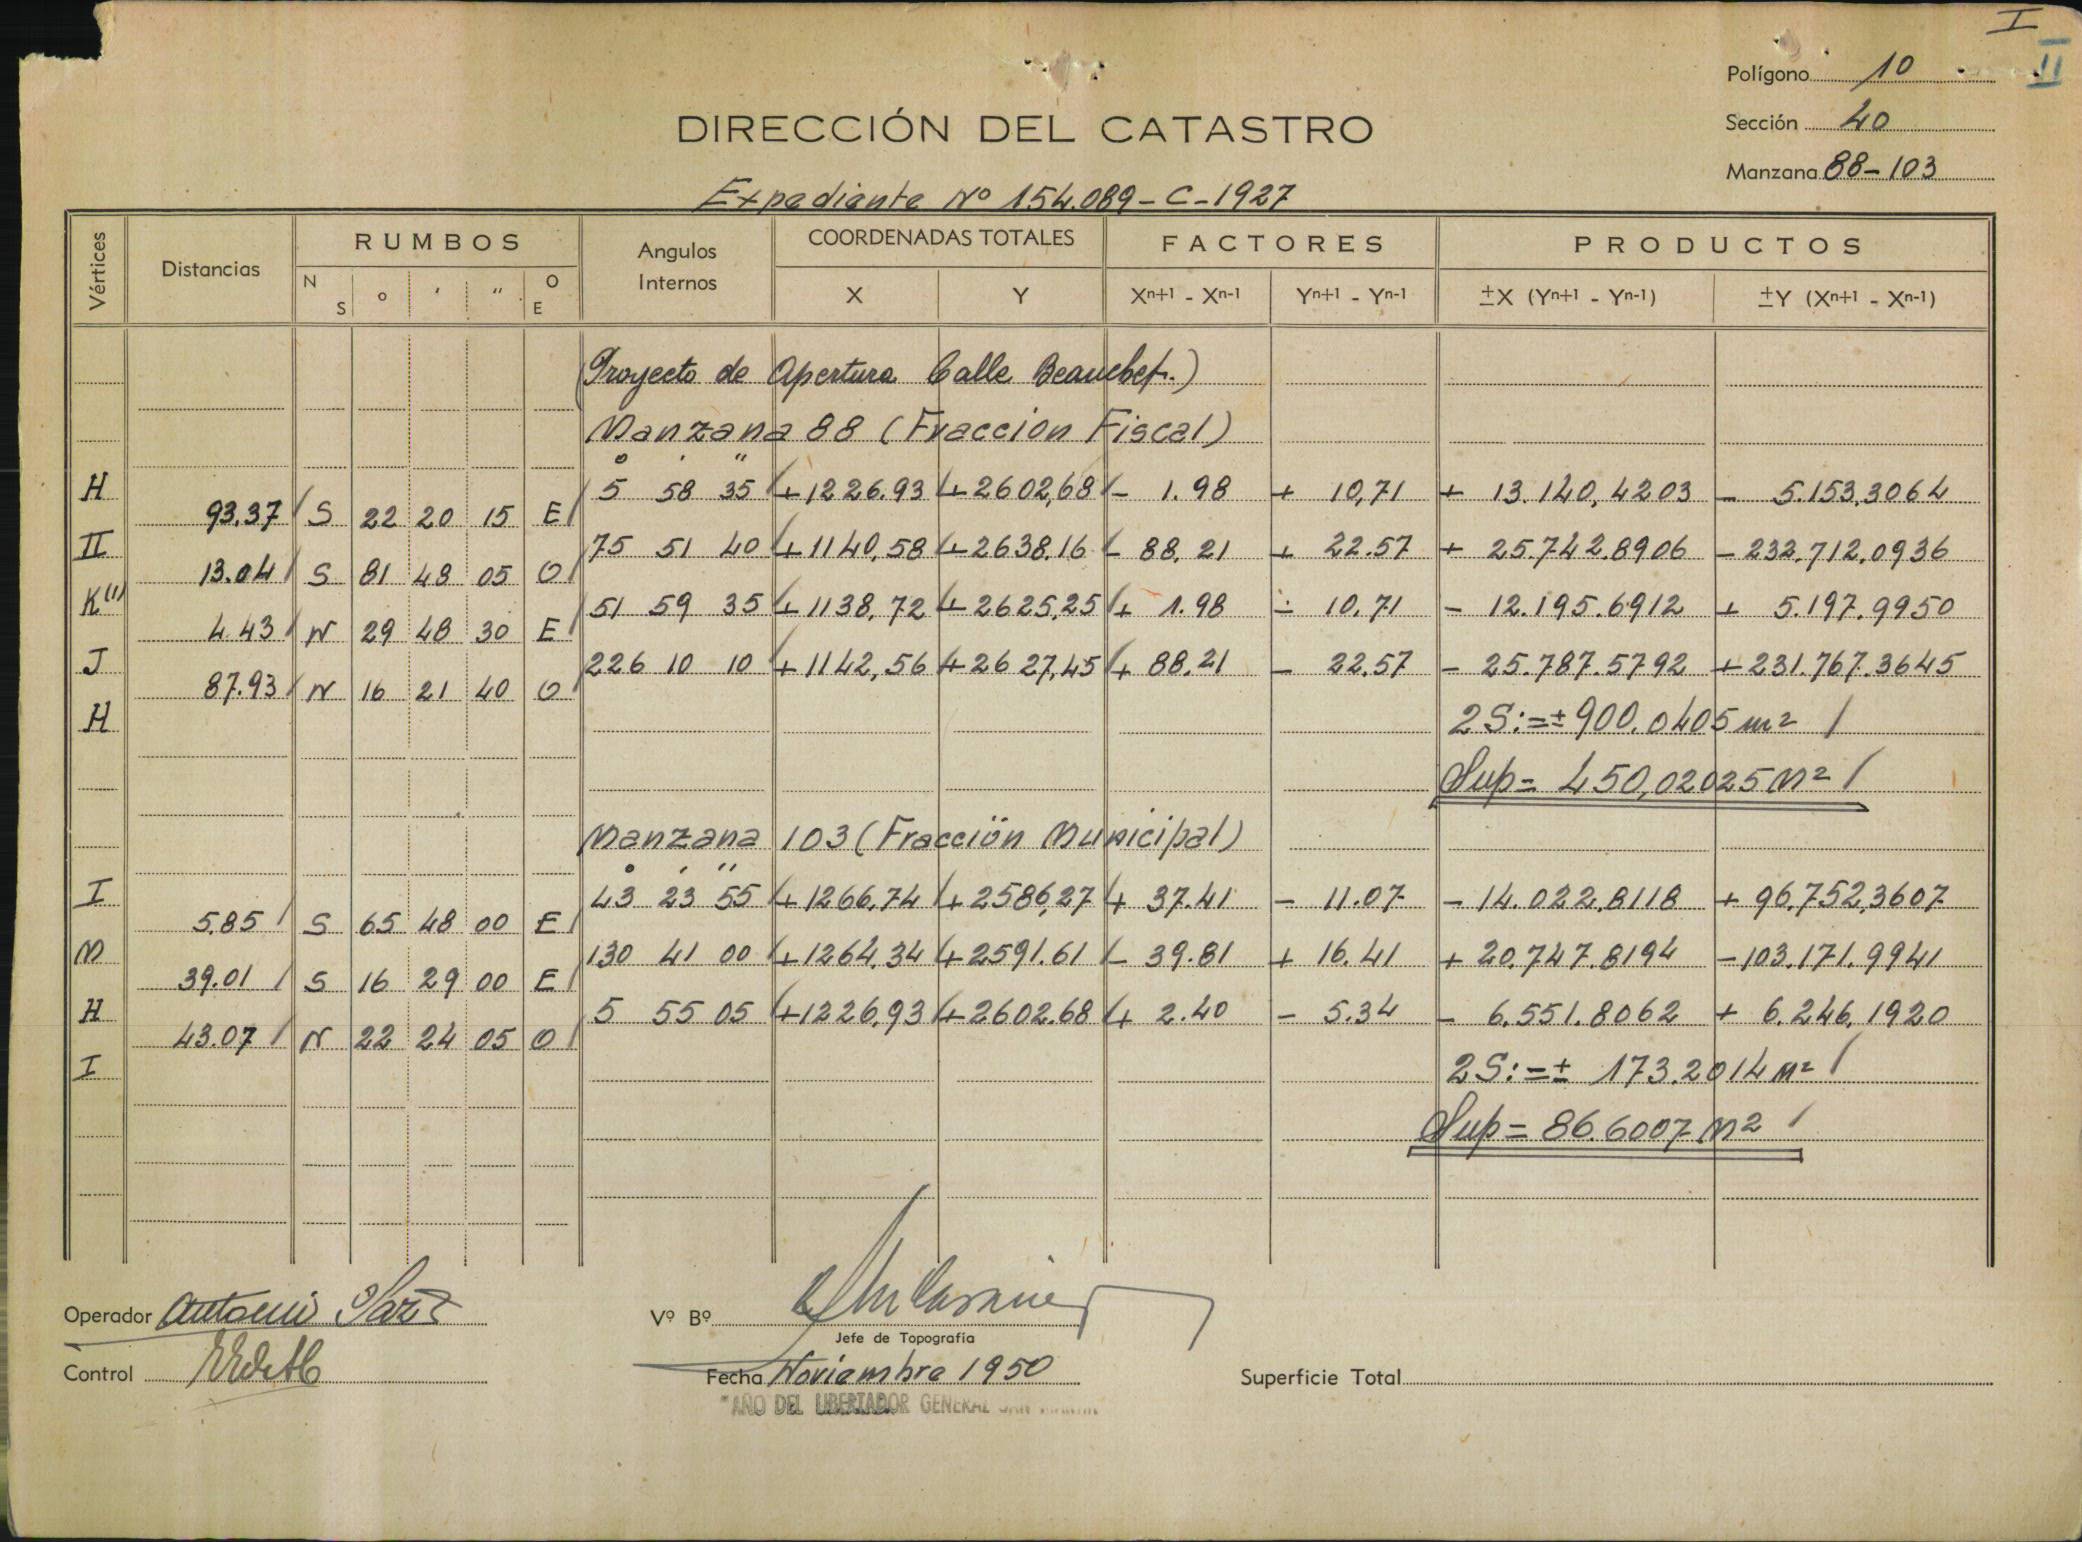 I
II
Polígono 10
Sección 40
Manzana 88-103
DIRECCIÓN DEL CATASTRO
Expediente Nº 154.089-C-1927
Vértices Distancias RUMBOS Angulos Internos COORDENADAS TOTALES FACTORES PRODUCTOS
N S o ' '' O E X Y Xn+1 - Xn-1 Yn+1 - Yn-1 ±X (Yn+1 - Yn-1) ±Y (Xn+1 - Xn-1)
(Proyecto de Apertura Calle Beauchef.)
Manzana 88 (Fraccion Fiscal)
o ' ''
H 5 58 35 +1226.93 +2602,68 - 1.98 + 10,71 + 13.140,4203 - 5.153,3064
93.37 S 22 20 15 E
II 75 51 40 +1140,58 +2638.16 - 88.21 + 22.57 + 25.742.8906 -232.712.0936
13.04 S 81 48 05 O
K(1) 51 59 35 +1138,72 +2625,25 + 1.98 - 10.71 - 12.195.6912 + 5.197.9950
4.43 N 29 48 30 E
J 226 10 10 +1142,56 +2627,45 + 88.21 - 22.57 - 25.787.5792 +231.767.3645
87.93 N 16 21 40 O
H 2S:=±900.0405 m2
Sup= 450,02025 M2
Manzana 103 (Fracción Municipal)
o ' ''
I 43 23 55 +1266,74 +2586,27 + 37.41 - 11.07 - 14.022.8118 + 96.752,3607
5.85 S 65 48 00 E
M 130 41 00 +1264.34 +2591.61 - 39.81 + 16.41 + 20.747.8194 -103.171.9941
39.01 S 16 29 00 E
H 5 55 05 +1226,93 +2602.68 + 2.40 - 5.34 - 6.551.8062 + 6.246,1920
43.07 N 22 24 05 O
I 2S:=± 173.2014 M2
Sup= 86.6007 M2
Operador Antonio
Vº Bº
Jefe de Topografía
Control
Fecha Noviembre 1950
Superficie Total
"AÑO DEL LIBERTADOR GENERAL SAN MARTIN